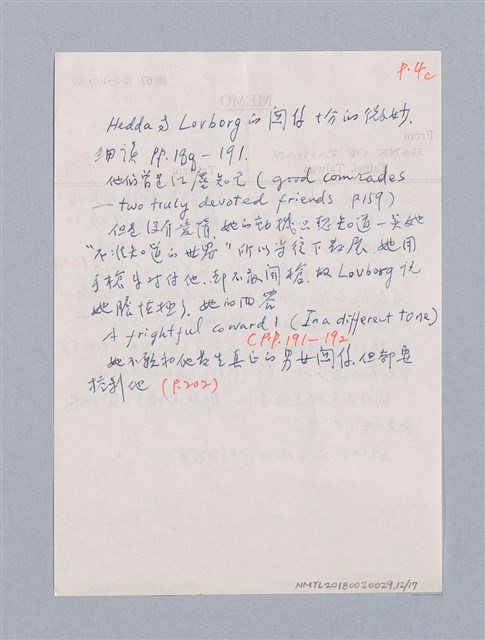 P.4c
Hedda與Lovborg的関係十分的微妙.
細讀 PP.189-191.
他們曾是紅塵知己 (good comrades
— two truly devoted friends P159)
但是沒有愛情. 她的動機只想知道一些她
"不准知道的世界" 所以当往下發展, 她用
手槍來对付他, 却不敢開槍. 故Lovborg說
她膽怯極了. 她的回答
A frightful coward! (In a different tone)
(P.P. 191-192
她不願和他發生真正的男女関係. 但却要
控制他 (P.202)
MEMO
From
BANK OF TAIWAN
NMTL20180020029.12/17